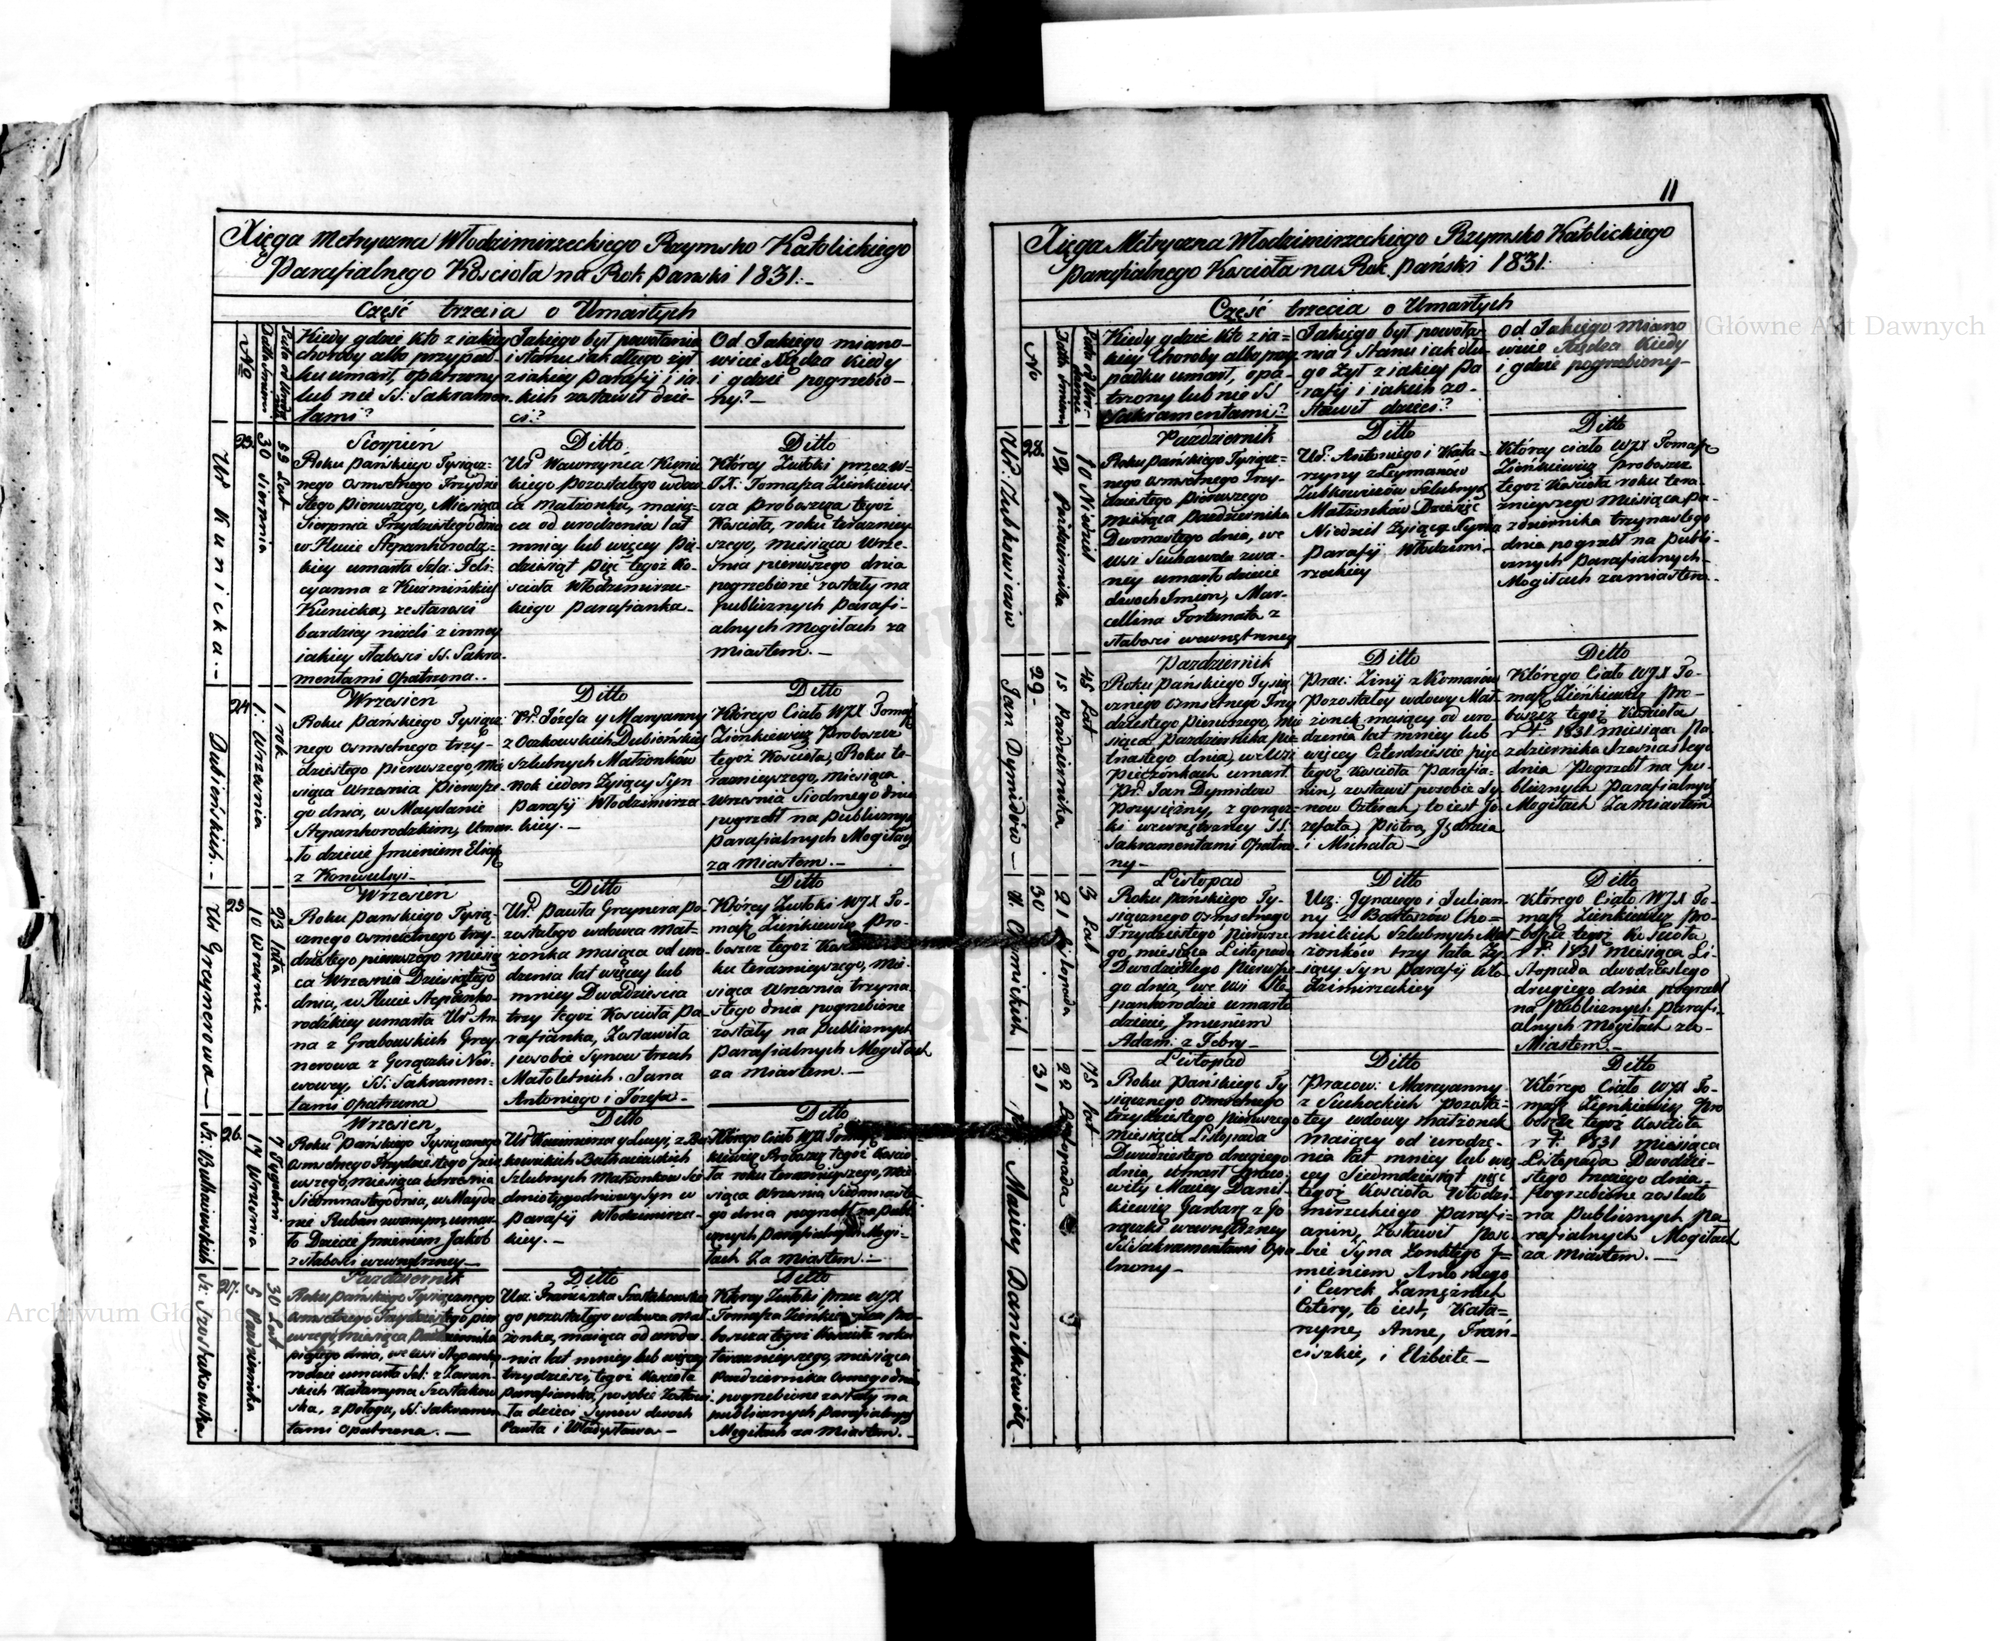 Xięga Metryczna Włodzimirzeckiego Rzymsko Katolickiego
Parafialnego Kościoła na Rok Panski 1831.-
Część trzecia o Umarłych
No
Data śmierci
Kiedy gdzie kto z iakiey
choroby albo przypad-
ku umarł, opatrzony
lub nie SS: Sakramen-
tami?
Jakiego był powołania
i stanu iak długo żył
z iakiey parafij i ia-
kich zostawił dzie-
ci:?
Od Jakiego miano-
wicie Xiędza kiedy
i gdzie pogrzebio-
ny? -
Ur Kunicka.-
23.
30 sierpnia
55 Lat
Sierpień
Roku Pańskiego Tysiącz-
nego osmsetnego Trzydzie
stego Pierwszego, Miesiąca
Sierpnia Trzydziestego dnia
w Hucie Stepankorodz-
kiey umarła Szla: Feli-
cyanna z Kuźmińskich
Kunicka, ze starosci
bardziey niżeli z inney
iakiey słabosci SS. Sakra-
mentami opatrzona..
Ditto
Ur. Wawrzyńca Kunic
kiego pozostałego wdow
ca małżonka, maią-
ca od urodzenia lat
mniey lub więcey Pię
dziesiąt pięć tegoż Ko-
scioła Włodzimirzec-
kiego parafianka.-
Ditto
Którey Zwłoki przez W
JX: Tomasza Zienkiewi
cza Proboszcza tegoż
Kościoła, roku teraźniey
szego, miesiąca Wrze-
śnia pierwszego dnia
pogrzebione zostały na
publicznych Parafi-
alnych Mogiłach za
miastem.-
Dubieńskich.-
24
1. Września
1 rok
Wrzesień
Roku Pańskiego Tysiącz
nego osmsetnego trzy-
dziestego pierwszego, Mie
siąca Września Pierwsze
go dnia, w Maydanie
Stepankorodzkim, Umar
ło dziecie Jmieniem Eliasz
z Konwulsyi-
Ditto
Ur. Józefa y Maryanny
z Oczkowskich Dubieńskich
Szlubnych Małżonków
Rok ieden Zyiący Syn
Parafij Włodzimirzec
kiey.-
Ditto
Którego Ciało WJX Tomasz
Zienkiewicz Proboszcz
tegoż Kościoła, Roku te-
raznieyszego, miesiąca
Września Siodmego dnia
pogrzebł na publicznych
parafialnych Mogiłach
za Miastem.-
Ur Greynerowa-
25
10 Wrzesnia
23 lata
Wrzesień
Roku Pańskiego Tysią-
cznego osmsetnego trzy-
dziestego pierwszego miesią
ca Września Dziesiątego
dnia, w Hucie Stepanko-
rodzkiey umarła Ur: An
na z Grabowskich Grey-
nerowa z Gorączki Ner-
wowey, SS: Sakramen-
tami opatrzona
Ditto
Ur. Pawła Greynera po
zostałego wdowca mał-
żonka maiąca od uro-
dzenia lat więcey lub
mniey Dwadzieścia
trzy tegoż Koscioła pa-
rafianka, Zostawiła
po sobie Synow trzech
Małoletnich. Jana
Antoniego i Józefa-
Ditto
Którey Zwłoki WJX To-
masz Zienkiewicz Pro-
boszcz tegoż Kościoła
ku teraznieyszego, Mie-
siąca Września trzyna
stego dnia pogrzebione
zostały na publicznych
Parafialnych Mogiłach
za miastem.-
26.
17 Wrzesnia
7 Tygodni
Wrzesień
Roku Pańskiego Tysiącznego
osmsetnego Trzydziestego pier
wszego, miesiąca Września
Siedmnastego dnia, w Mayda
nie Ruban zwanym, umar
ło Dziecie Jmieniem Jakób
z słabosci wewnętrzney-
Ditto
Szlubnych Małżonków Sie
dmiotygodniowy Syn w
Parafij Włodzimirzec-
kiey.-
Ditto
Którego Ciało WJX Tomasz
kiewicz Proboszcz tegoż Koscio-
ła roku teraznieyszego, Mie-
siąca Września Siedmnaste
go dnia pogrzebł na publi
cznych parafialnych Mogi-
łach Za miastem.-
Sz: Szostakowska
27.
5 Października
30 Lat
Pazdziernik
Roku Pańskiego Tysiącznego
osmsetnego Trzydziestego pier
wszego, miesiąca Pazdziernika
piątego dnia, we Wsi Stepanko
rodzie umarła Szl: z Zaran-
skich Katarzyna Szostakow
ska, z połogu, SS. Sakramen
tami opatrzona.-
Ditto
Ur: Franciszka Szostakowskie
go pozostałego wdowca mał
żonka, maiąca od urodze-
nia lat mniey lub więcey
trzydzieści, tegoż Kościoła
parafianka, po sobie Zostawi
ła dzieci Synów dwoch
Pawła i Władysława-
Ditto
Którey Zwłoki przez WJX
Tomasza Zienkiewicza Pro-
boszcza tegoż Kościoła roku
teraznieyszego, miesiąca
Pazdziernika Osmego dnia
pogrzebione zostały na
publicznych parafialnych
Mogiłach za Miastem.-
11
Xięga Metryczna Włodzimirzeckiego Rzymsko Katolickiego
Parafialnego Kościoła na Rok Pański 1831.
Część trzecia o Umarłych
No
Data śmierci
Kiedy gdzie kto z ia=
kiey Choroby albo przy-
padku umarł, opa-
trzony lub nie SS
Sakramentami?
Jakiego był powoła-
nia i Stanu iak dłu-
go Zył z iakiey Pa
rafij i iakich zo-
stawił dzieci?
Od Jakiego miano
wicie Xiędza kiedy
i gdzie pogrzebiony-
Ur. Zubkowiczów
28.
12 Pazdziernika
10 Niedziel
Październik
Roku Pańskiego Tysiącz-
nego osmsetnego Trzy-
dziestego pierwszego
miesiąca Pazdziernika
Dwonastego dnia, we
Wsi Suchawola zwa-
ney umarło dziecie
dwoch Jmion, Mar-
cellina Fortunata z
słabosci wewnętrzney
Ditto
Ur. Antoniego i Kata-
rzyny z Szymanow
Zubkowiczów Szlubnych
Małżonków Dziesięć
Niedziel Zyiąca
Parafij Włodzimi-
rzeckiey
Ditto
Którey ciało WJX Tomasz
Zienkiewicz Proboszcz
tegoż Kościoła roku tera-
źnieyszego Miesiąca Pa-
zdziernika trzynastego
dnia pogrzebł na publi-
cznych Parafialnych
Mogiłach za miastem.
Jan Dymidow-
29-
15 Pazdziernika
45 Lat
Pazdziernik
Roku Pańskiego Tysią-
cznego osmsetnego Trzy
dziestego Pierwszego, mie
siąca Pazdziernika Pię-
tnastego dnia, we Wsi
Pieczonkach umarł
Pr. Jan Dymidow
Przysiężny, z gorącz-
ki wewnętrzney SS.
Sakramentami Opatrzo-
ny-
Ditto
Prac: Zinij z Komarów
Pozostałey wdowy Mał-
żonek maiący od uro-
dzenia lat mniey lub
więcey Czterdzieście pięć
tegoż Kościoła Parafia-
nin, zostawił po sobie Sy-
now Czterech, to iest Jo-
zefata, Piotra, Jędrzeia
i Michała-
Ditto
Którego Ciało WJX To-
masz Zienkiewicz Pro-
boszcz tegoż Kościoła
1831 miesiąca Pa
zdziernika Szesnastego
dnia Pogrzebł na pu-
blicznych Parafialnych
Mogiłach za Miastem
30
21 Listopada
3 Lat
Listopad
Roku Pańskiego Ty-
siącznego osmsetnego
Trzydziestego pierwsze-
go, miesiąca Listopada
Dwodziestego Pierwsze
go dnia, we Wsi Ste-
pankorodzie umarło
dziecie, Jmieniem
Adam: z Febry-
Ditto
Ur: Jgnacego i Julian-
ny z Bartoszow Cho=
mickich Szlubnych Mał-
żonków trzy lata Zy-
iący Syn Parafij Wło-
dzimirzeckiey
Ditto
Którego Ciało WJX To-
masz Zienkiewicz Pro-
boszcz tegoż Kościoła
1831 miesiąca Li-
stopada dwodziestego
drugiego dnia pogrzebł
na Publicznych Parafi-
alnych Mogiłach za-
Miastem.-
Maciey Danilkiewicz
31
22 Listopada
75 lat
Listopad
Roku Pańskiego Ty-
siącznego osmsetnego
trzydziestego pierwszego
miesiąca Listopada
Dwudziestego drugiego
dnia, umarł Praco-
wity Maciey Danil-
kiewicz Garbarz z Go-
rączki wewnętrzney
SS. Sakramentami Opa-
trzony-
Ditto
Pracow: Maryanny
z Suchockich Pozosta-
łey wdowy małżonek
maiący od urodze-
nia lat mniey lub wię
cey Siedmdziesiąt pięć
tegoż Kościoła Włodzi-
mirzeckiego parafi-
anin, Zostawił poso-
bie Syna Zonatego J=
mieniem Antoniego
i Curek Zamężnych
Cztery, to iest, Kata=
rzynę, Annę, Fran-
ciszkę, i Elżbietę-
Ditto
Którego Ciało WJX To-
masz Zienkiewicz Pro
boszcz tegoż Kościoła
1831 miesiąca
Listopada Dwodzie-
stego trzeciego dnia-
Pogrzebione zostało
na publicznych Pa
rafialnych Mogiłach
za Miastem.-
Archiwum Główne
Główne Akt Dawnych